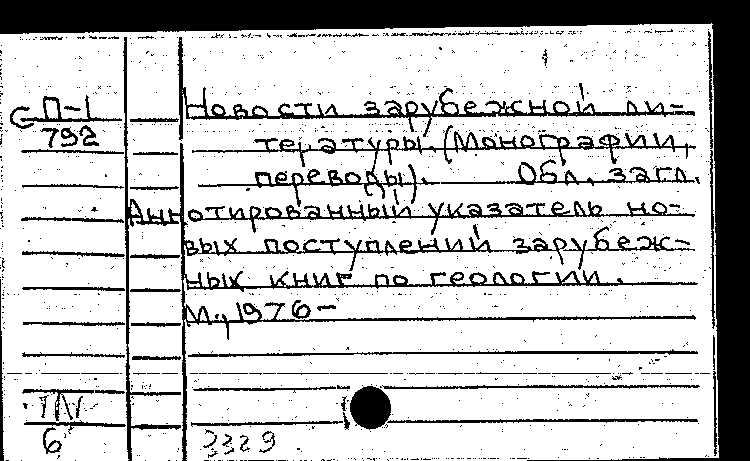 С П-1
792
Новости зарубежной ли-
тературы. (Монографии,
переводы). Обл. загл.
Аннотированный указатель но-
вых поступлений зарубеж-
ных книг по геологии.
М., 1976-
6
3329